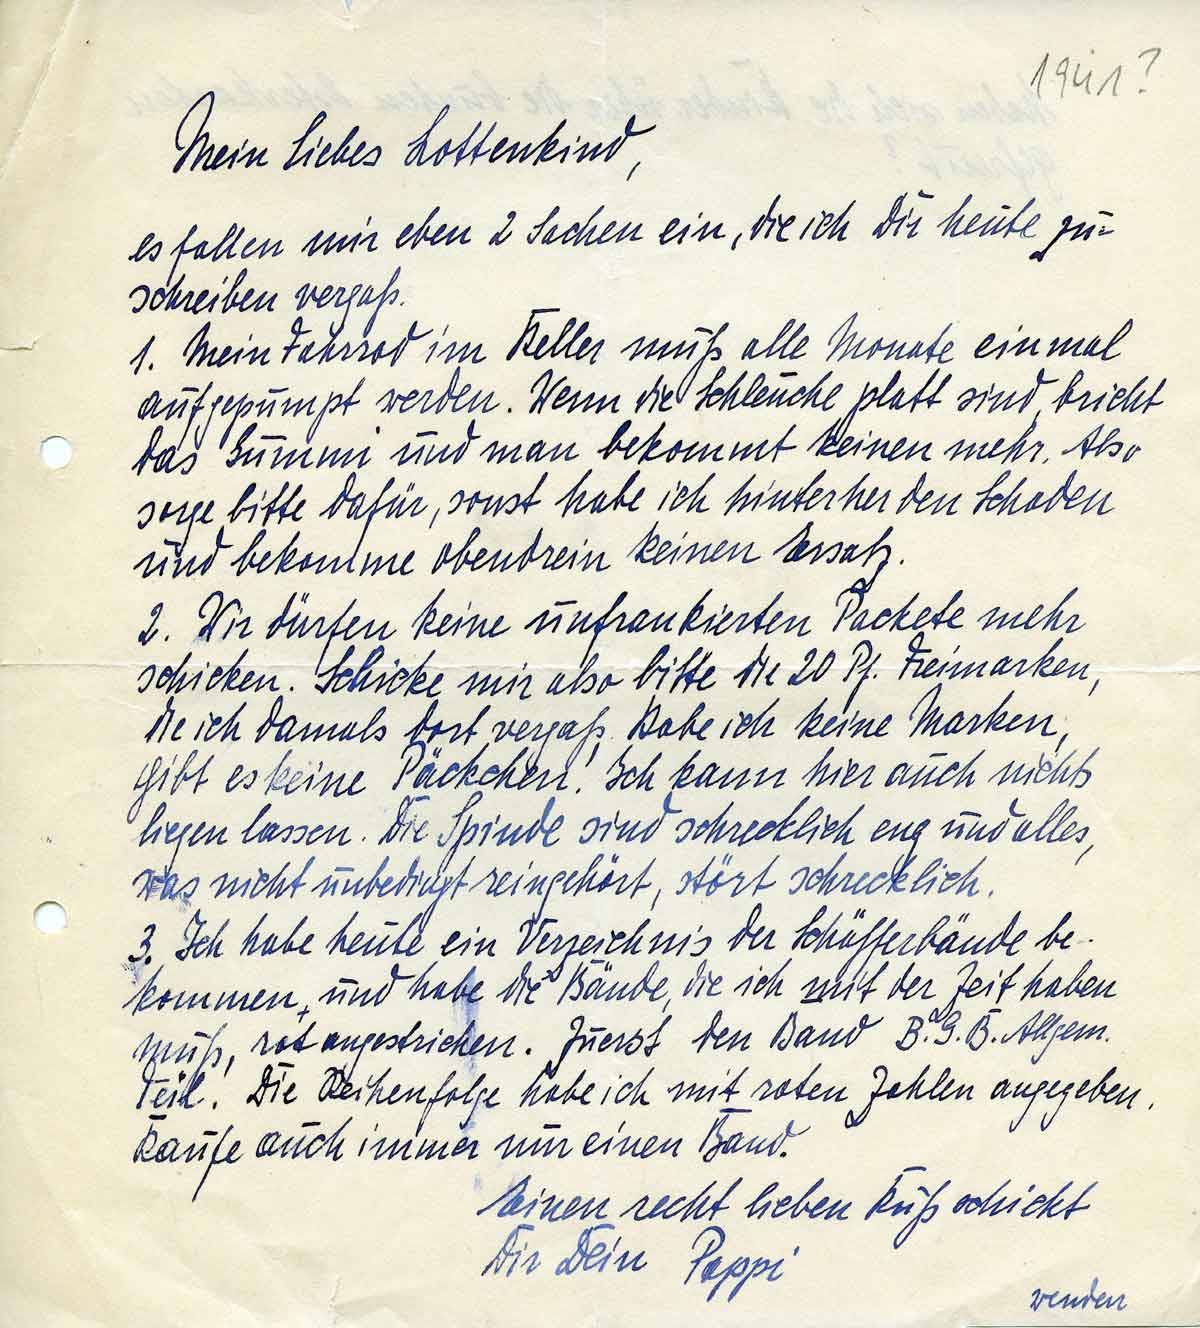 1941?
Mein liebes Lottenkind,
es fallen mir eben 2 Sachen ein, die ich Dir heute zu=
schreiben vergaß.
1. Mein Fahrrad im Keller muß alle Monate einmal
aufgepumpt werden. Wenn die Schleuche platt sind, bricht
das Gummi und man bekommt keinen mehr. Also
sorge bitte dafür, sonst habe ich hinterher den Schaden
und bekomme obendrein keinen Ersatz.
2. Wir dürfen keine unfrankierten Packete mehr
schicken. Schicke mir also bitte die 20 Pf. Freimarken,
die ich damals dort vergaß. Habe ich keine Marken,
gibt es keine Päckchen! Ich kann hier auch nichts
liegen lassen. Die Spinde sind schrecklich eng und alles,
was nicht unbedingt reingehört, stört schrecklich.
3. Ich habe heute ein Verzeichnis der Schäfferbände be-
kommen, und habe die Bände, die ich mit der Zeit haben
muß, rot angestrichen. Zuerst den Band B.G.B. Allgem.
Teil. Die Reihenfolge habe ich mit roten Zahlen angegeben.
Kaufe auch immer nur einen Band.
Einen recht lieben Kuß schickt
Dir Dein Pappi
wenden